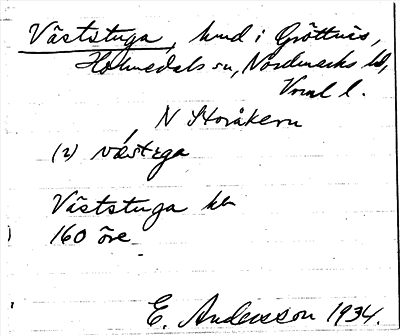 Väststuga, hmd i Gröttnäs,
Holmedals sn, Nordmarks hd,
Vrml l.
N Storåkern
(2) västᶒga
Väststuga
160 öre
E. Andersson 1934.